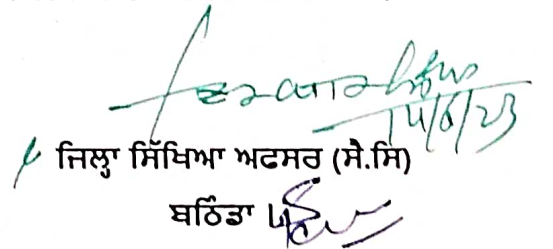 14/6/23
ਜਿਲ੍ਹਾ ਸਿੱਖਿਆ ਅਫਸਰ (ਸੈ.ਸਿ)
ਬਠਿੰਡਾ